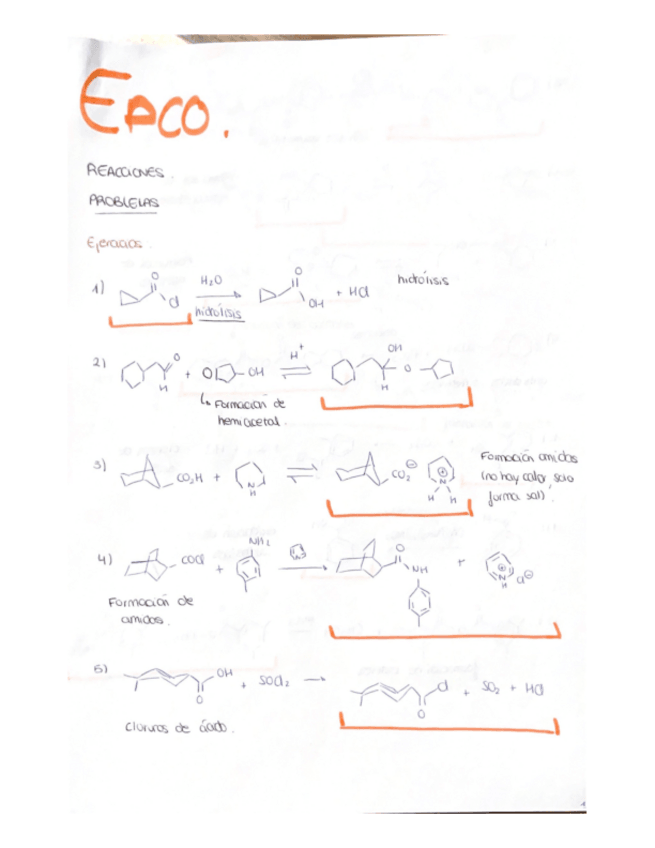 EACO.
REACCIONES.
PROBLEMAS
Ejercicios.
1) O Cl H₂O hidrólisis O OH + HCl hidrólisis
2) O H + O OH H⁺ OH H O
↳ Formación de
hemiacetal.
3) CO₂H + N H CO₂⊖ ⊕ N H H Formación amidas
(no hay calor, solo
forma sal).
4) COCl + NH₂ O NH + ⊕ N H Cl⊖
Formación de
amidas.
5) OH O + SOCl₂ → Cl O + SO₂ + HCl
Cloruros de ácido.
1